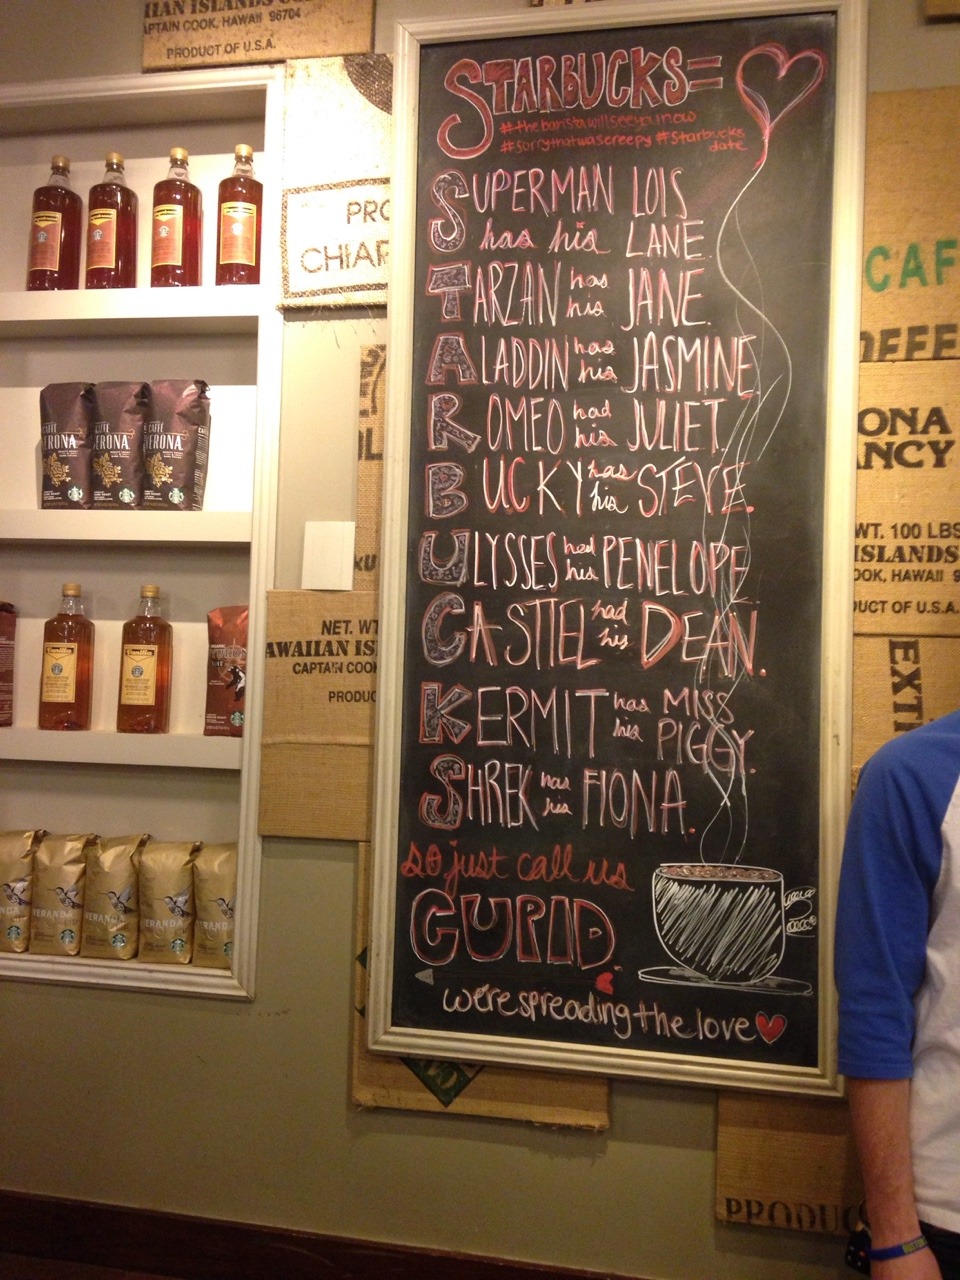 IIAN ISLANDS
APTAIN COOK, HAWAII 96704
PRODUCT OF U.S.A.
STARBUCKS=
#thebaristawillseeyounow
#sorrythatwascreepy #Starbucks
date
SUPERMAN LOIS
has his LANE.
TARZAN has
his JANE.
ALADDIN has
his JASMINE.
ROMEO had
his JULIET.
BUCKY has
his STEVE.
ULYSSES had
his PENELOPE
CASTIEL had
his DEAN.
KERMIT has MISS
his PIGGY.
SHREK has
his FIONA.
so just call us
CUPID
we're spreading the love
PRO
CHIAP
CAFFE
VERONA
VERANDA
Vanilla
Vanilla
NET. WT
AWAIIAN IS
CAPTAIN COOK
PRODUC
CAF
OFFEE
ONA
NCY
WT. 100 LBS
ISLANDS
OOK, HAWAII 9
DUCT OF U.S.A.
EXT
PRODUC